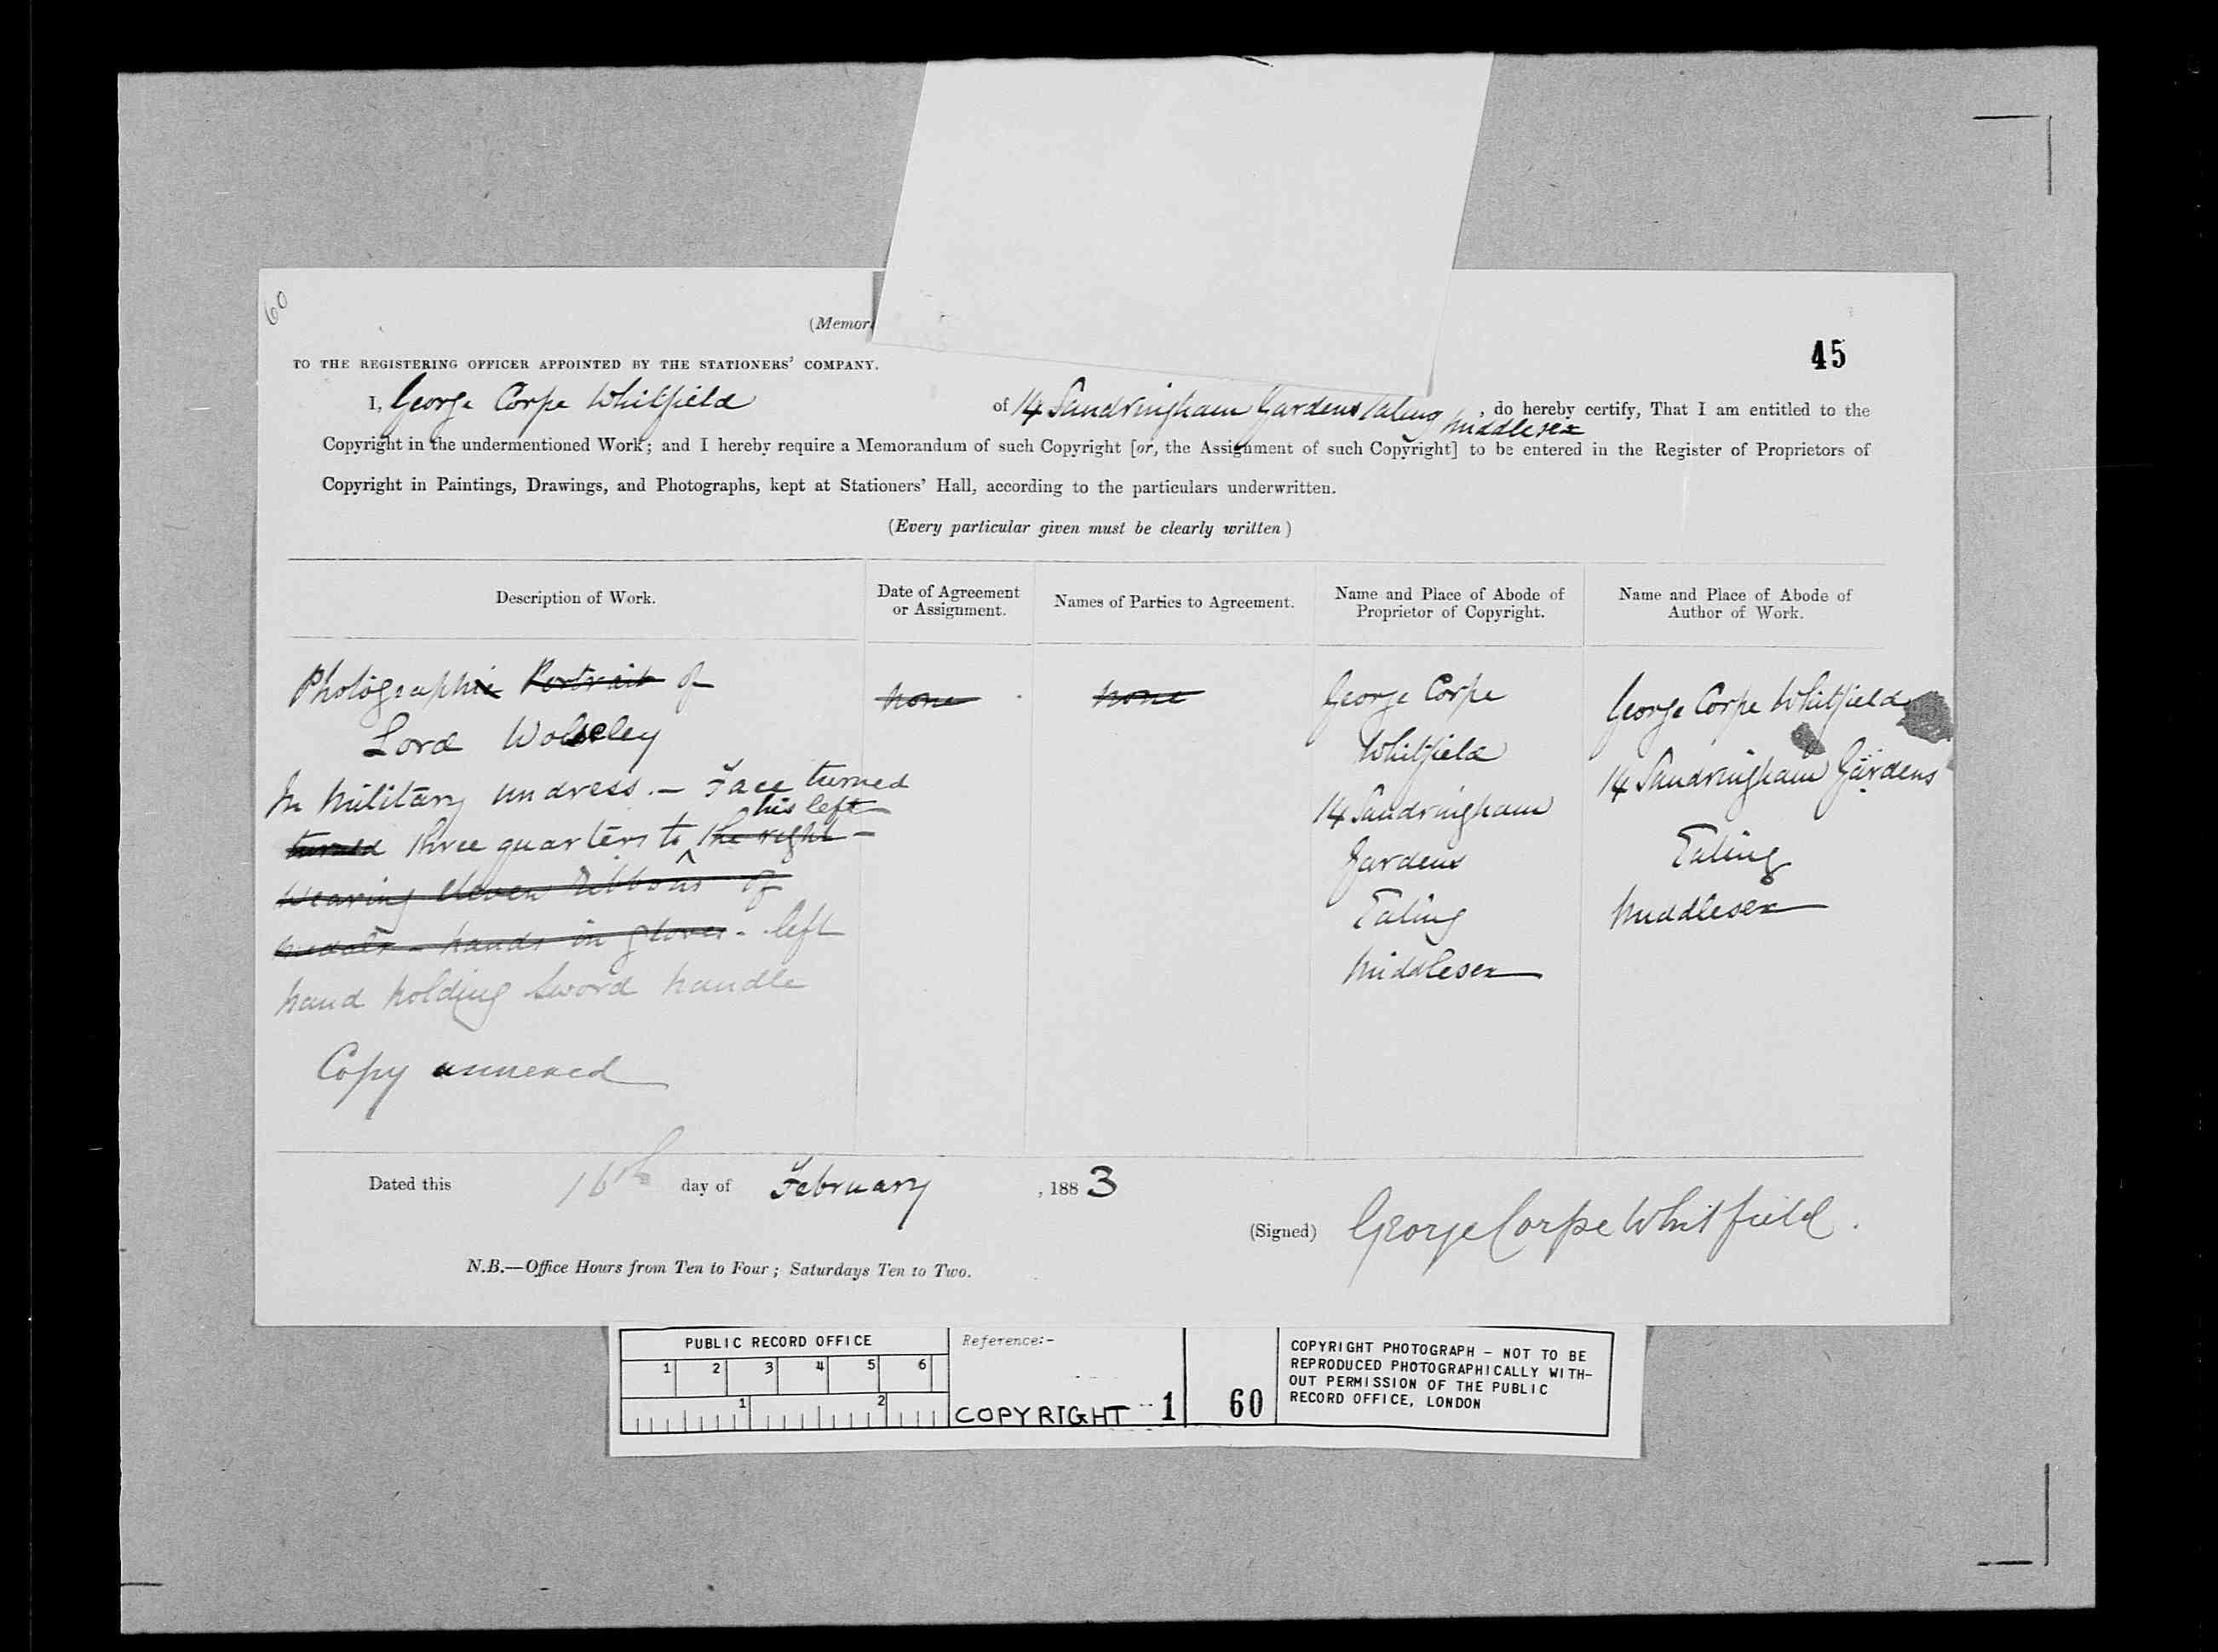 60
(Memor
45
TO THE REGISTERING OFFICER APPOINTED BY THE STATIONERS' COMPANY.
I, George Corpe Whitfield of 14 Sandringham Gardens Ealing Middlesex, do hereby certify, That I am entitled to the
Copyright in the undermentioned Work; and I hereby require a Memorandum of such Copyright [or, the Assignment of such Copyright] to be entered in the Register of Proprietors of
Copyright in Paintings, Drawings, and Photographs, kept at Stationers' Hall, according to the particulars underwritten.
(Every particular given must be clearly written)
Description of Work.
Date of Agreement
or Assignment.
Names of Parties to Agreement.
Name and Place of Abode of
Proprietor of Copyright.
Name and Place of Abode of
Author of Work.
Photographic Portrait of
Lord Wolseley
In Military undress. - Face turned
his left
turned three quarters to the right -
Wearing eleven ribbons of
medals - hands in gloves - left
hand holding Sword handle
Copy annexed
none
none
George Corpe
Whitfield
14 Sandringham
Gardens
Ealing
Middlesex
George Corpe Whitfield
14 Sandringham Gardens
Ealing
Middlesex
Dated this 16th day of February, 1883
(Signed) George Corpe Whitfield.
N.B.—Office Hours from Ten to Four; Saturdays Ten to Two.
PUBLIC RECORD OFFICE
1 2 3 4 5 6
1 2
Reference:-
COPYRIGHT 1 60
COPYRIGHT PHOTOGRAPH - NOT TO BE
REPRODUCED PHOTOGRAPHICALLY WITH-
OUT PERMISSION OF THE PUBLIC
RECORD OFFICE, LONDON